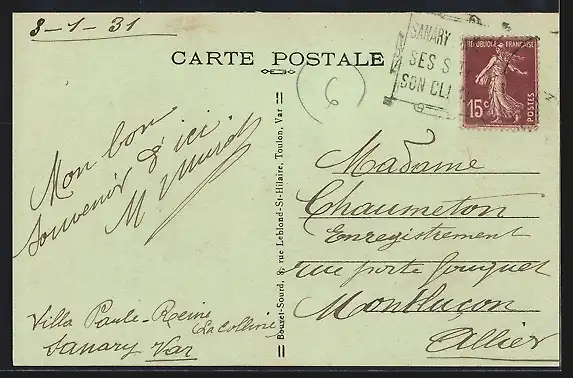 3-1-31
CARTE POSTALE
SANARY
SES S
SON CLI
REPUBLIQUE FRANÇAISE
15c
POSTES
6
Mon bon
souvenir d'ici.
M.
Villa Paule-Reine
(La Colline)
Sanary Var
Bouvet-Sourd, 8, rue Leblond-St-Hilaire, Toulon, Var
Madame
Chaumeton
Enregistrement
rue porte Fouquet
Montluçon
Allier